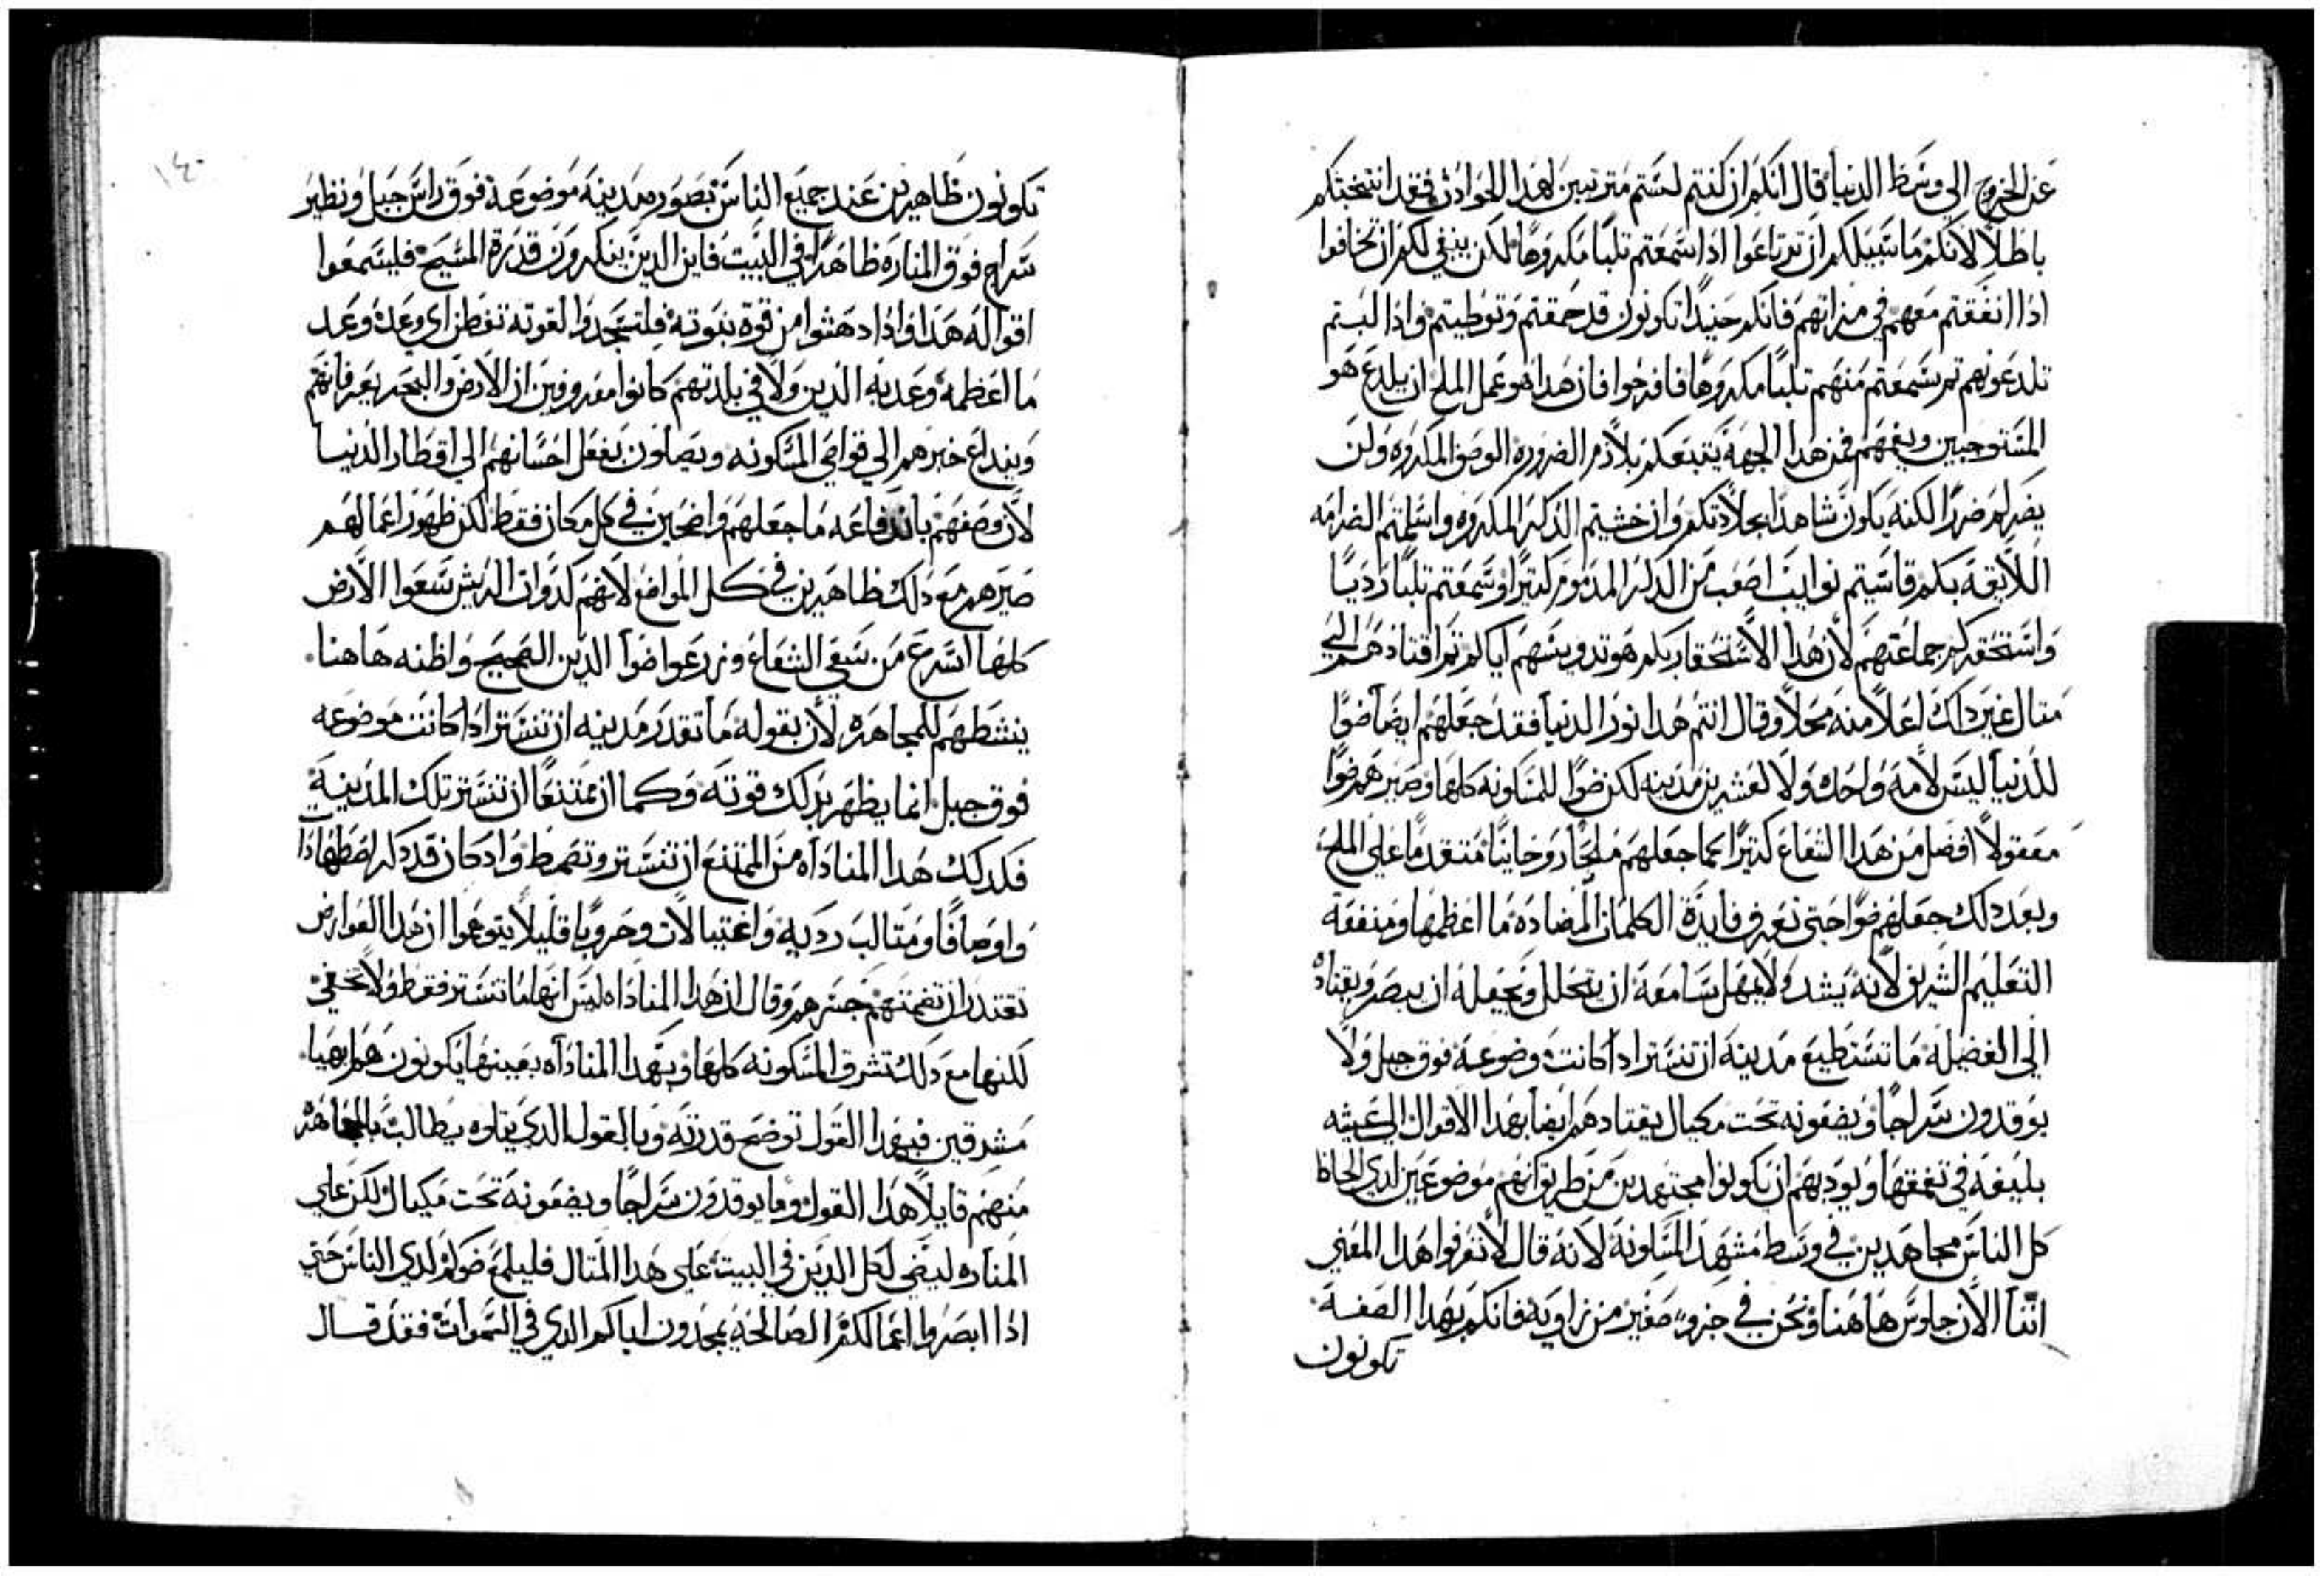 عن الخروج الي وسط الدنيا قال انكم ان كنتم لستم مترتبين لهذا الحوادث فقد انتخبتكم
باطلاً لانكم ما سبيلكم ان ترتاعوا اذا سمعتم تلبًا مكروهًا لكن ينبغي لكم ان تخافوا
اذا انفقتم معهم في مراتهم فانكم حنيدًا تكونون قد حمقتم وتوطيتم واذا لبتم
تلدعونهم تم سمعتم منهم تلبًا مكروهًا فافرحوا فان هذا هو عمل الملح ان يلدع هو
المستوجبين ويغهم فمن هذا الجهه يتبعكم بلازم الضروره الوصف المكروه ولن
يضركم ضررًا لكنه يكون شاهدًا بجلادتكم وان خشيتم الذكر المكروه واسلمتم الصرامه
اللايقة بكم قاسيتم نوايب اصعب من الذكر المدموم كتيرًا وسمعتم تلبًا رديًا
واستحقركم جماعتهم لان هذا الاستحقار بكم هو تدويسهم اياكم تم اقتادهم الي
متال غير داك اعلا منه محلاً وقال انتم هدا نور الدنيا فقد جعلهم ايضًا ضوًا
للدنيا ليس لامه واحده ولا لعشرين مدينه لكن ضوًا للمسكونه كلها وصيرهم ضوًا
معقولاً افضل من هدا الشعاع كتيرًا كما جعلهم ملحًا روحانيًا متقدمًا علي الملح
وبعد دلك جعلهم ضوًا حتي تعرف فايدة الكلمات المضاده ما اعظمها ومنفعة
التعليم الشريف لانه يشد ولا يمهل سامعه ان يتحلل ويجعله ان يبصر ويقتاده
الي الفضيله ما تستطيع مدينه ان تستتر ادا كانت موضوعة فوق جبل ولا
يوقدون سراجًا ويضعونه تحت مكيال يقتادهم ايضًا بهدا الاقوال الي عيشه
بليغه في تعمقها ويوديهم ان يكونوا مجتهدين من طريق انهم موضوعين لدي الحاظ
كل الناس مجاهدين في وسط مشهد المسكونة لانه قال لا تعرفوا هدا المعني
اننا الان جلوس هاهنا ونحن في جزو صغير من زاوية فانكم بهدا الصفة
تكونون
١٤٠
تكونون ظاهرين عند جميع الناس بصوره مدينه موضوعة فوق راس جبل ونظير
سراج فوق المناره ظاهرًا في البيت فاين الدين ينكرون قدرة المسيح فليسمعوا
اقواله هدا وادا دهشوا من قوة نبوته فليسجدوا لقوته تفطن اي وعده وعد
ما اعظمه وعد به الدين ولا في بلدتهم كانوا معروفين ان الارض والبحر يعرفانهم
ويبداع خبرهم الي قواصي المسكونه ويصلون بفعل احسانهم الي اقطار الدنيا
لان وصفهم باندفاعه ما جعلهم واضحين في كل مكان فقط لكن ظهور اعمالهم
صيرهم مع دلك ظاهرين في كل المواضع لانهم كدوات الريش سعوا الارض
كلها اسرع من سعي الشعاع وزرعوا ضوا الدين الصحيح واظنه هاهنا
ينشطهم للمجاهره لان بقوله ما تقدر مدينه ان تستتر ادا كانت موضوعه
فوق جبل انما يظهر بدلك قوته وكما ان ممتنعًا ان تستتر تلك المدينة
فكدلك هدا المناداه من الممتنع ان تستتر وتصمط واد كان قد دكر اضطهادًا
واوصافًا ومتالب رديه واغتيالات وحروبًا قليلا يتوهموا ان هدا العوارض
تقتدر ان تصمتهم جسرهم وقال ان هدا المناداه ليس انها ما تستتر فقط ولا تخفي
لكنها مع دلك تشرق المسكونه كلها وبهدا المناداه بعينها يكونون هم بهيا
مشرقين فبهدا القول توضح قدرته وبالقول الدي يتلوه يطالب بالمجاهره
منهم قايلاً هدا القول وما يوقدون سراجًا ويضعونه تحت مكيال لكن علي
المناره ليضي لكل الدين في البيت علي هدا المتال فليلمع ضوكم لدي الناس حتي
ادا ابصروا اعمالكم الصالحه يمجدون اباكم الدي في السموات فقد قال